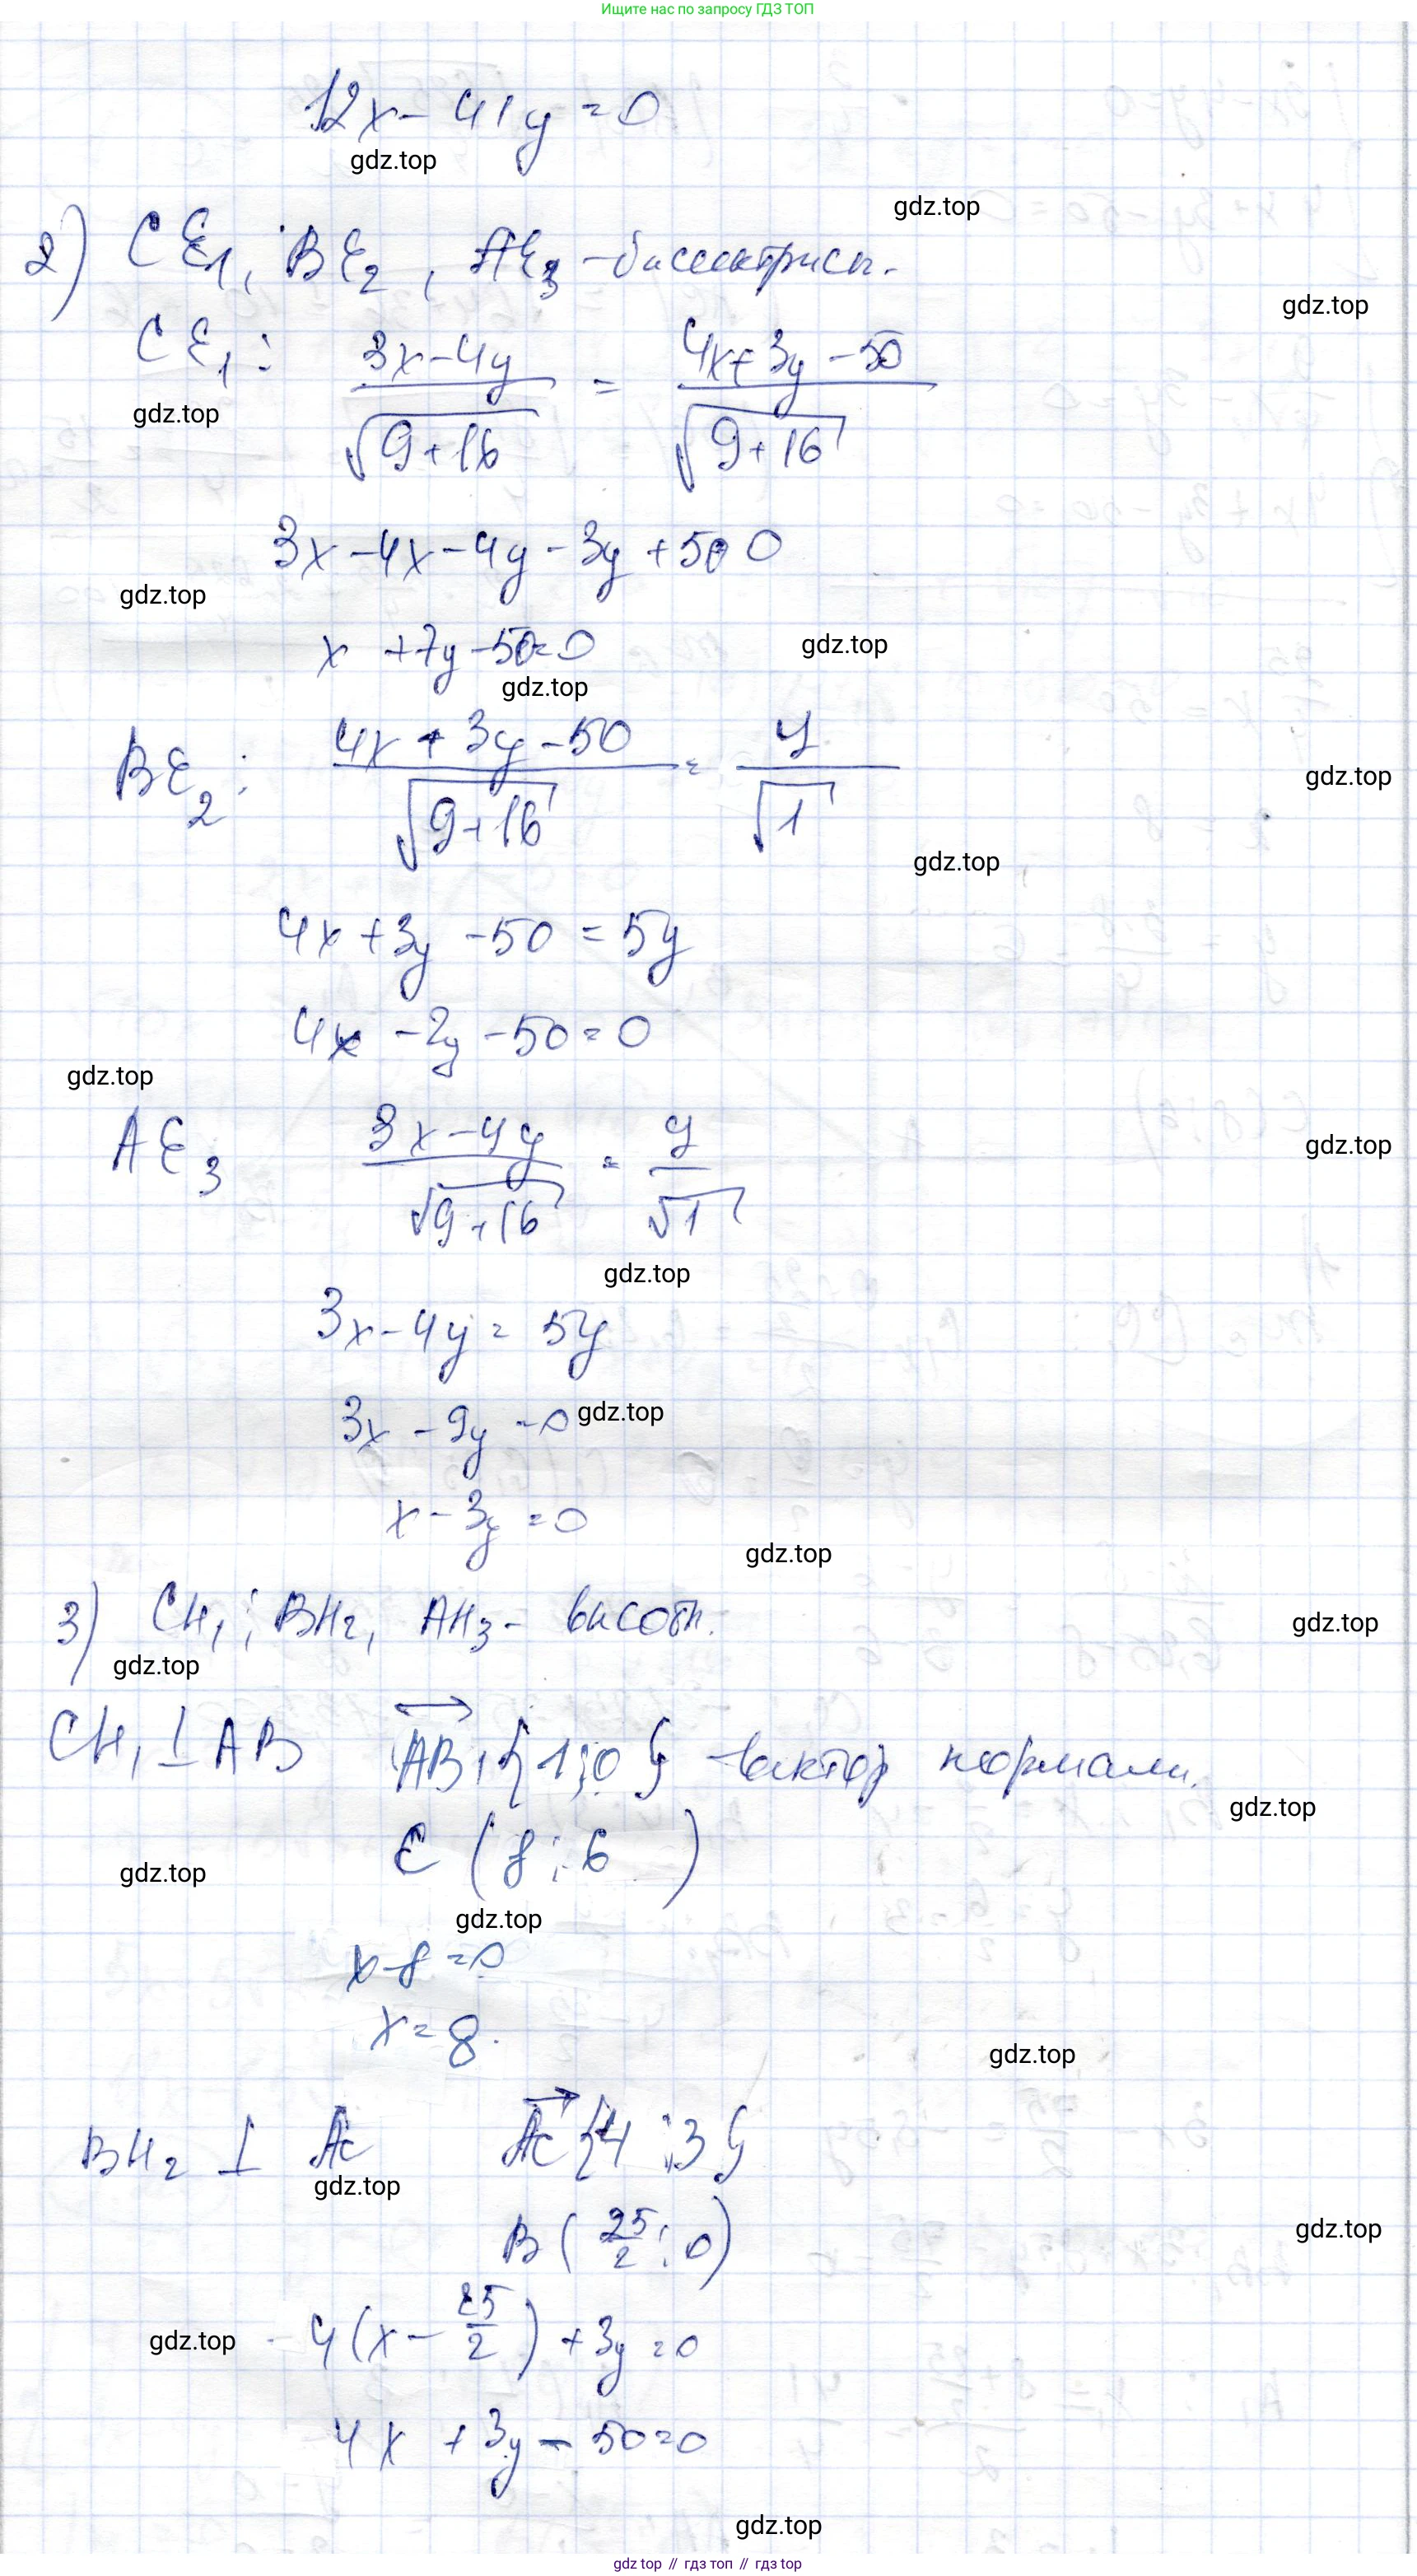 Ищите нас по запросу ГДЗ ТОП
12x - 41y = 0
gdz.top
gdz.top
2) CE₁; BE₂, AE₃ - биссектрисы.
gdz.top
CE₁: (3x-4y)/√(9+16) = (4x+3y-50)/√(9+16)
gdz.top
3x-4x-4y-3y+50 0
gdz.top
x +7y-50=0
gdz.top
gdz.top
BE₂: (4x+3y-50)/√(9+16) = y/√1
gdz.top
gdz.top
4x+3y-50=5y
gdz.top
4x-2y-50=0
gdz.top
AE₃ (3x-4y)/√(9+16) = y/√1
gdz.top
gdz.top
3x-4y=5y
3x-9y=0
gdz.top
x-3y=0
gdz.top
3) CH₁; BH₂, AH₃- высоты.
gdz.top
gdz.top
CH₁ ⊥ AB AB, {1;0} - вектор нормали.
gdz.top
C (8; 6)
gdz.top
gdz.top
x-8=0
x=8.
gdz.top
BH₂ ⊥ AC AC {4;3}
gdz.top
B (25/2; 0)
gdz.top
4(x-25/2)+3y=0
gdz.top
4x+3y-50=0
gdz.top
gdz top // гдз топ // гдз top